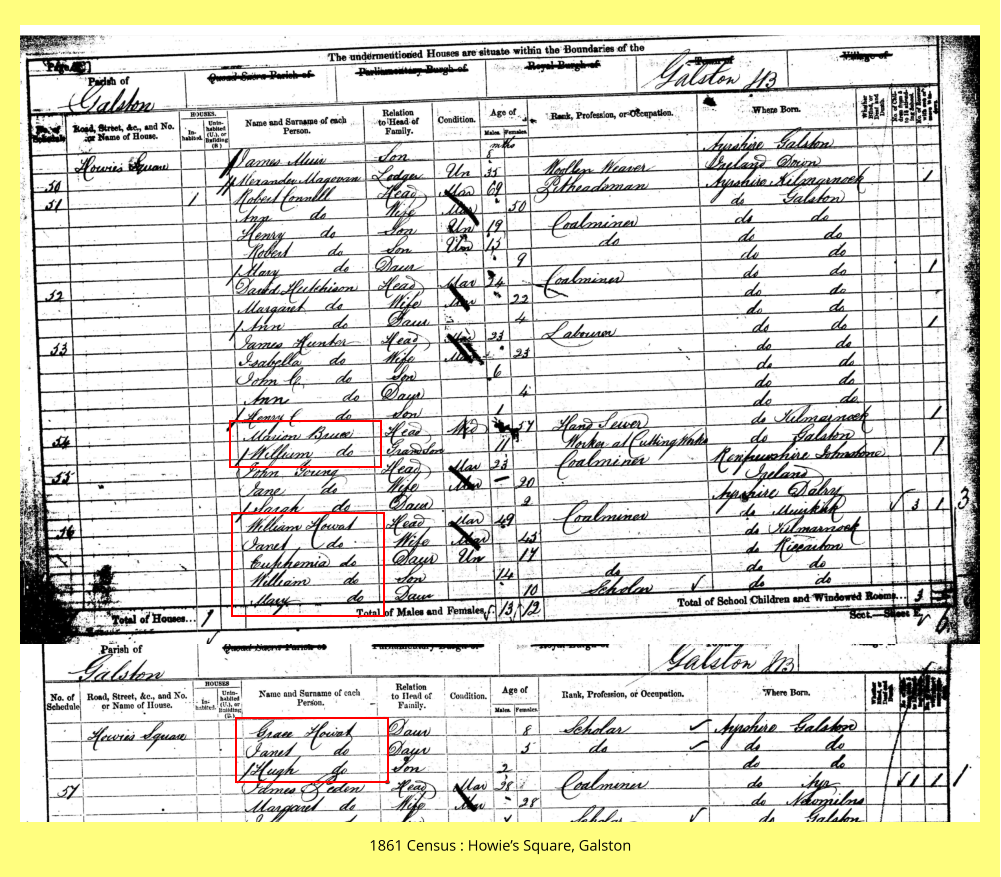 The undermentioned Houses are situate within the Boundaries of the
Parish of Quoad Sacra Parish of Parliamentary Burgh of Royal Burgh of Town of Village of
Galston Galston JB
No. of Schedule Road, Street, &c., and No. or Name of House. HOUSES. Inhabited Uninhabited (U.), or Building (B.) Name and Surname of each Person. Relation to Head of Family. Condition. Age of Males. Females. Rank, Profession, or Occupation. Where Born.
Howies Square James Muir Son mths Ayrshire Galston
50 Alexander Magowan Lodger Un 35 Woollen Weaver Ireland Down
51 1 Robert Connell Head Mar 69 Pitheadsman Ayrshire Kilmarnock 1
Ann do Wife Mar 50 do Galston
Henry do Son Un 19 Coalminer do do
Robert do Son Un 15 do do do
Mary do Daur 9 do do
52 David Hutchison Head Mar 24 Coalminer do do 1
Margaret do Wife Mar 22 do do
Ann do Daur 4 do do
53 James Hunter Head Mar 23 Labourer do do 1
Isabella do Wife Mar 23 do do
John C. do Son 6 do do
Ann do Daur 4 do do
Henry C do Son 1 do do
54 Marion Bruce Head Wid 57 Hand Sewer do Kilmarnock 1
William do Grandson 11 Worker at Cutting Works do Galston
55 John Young Head Mar 23 Coalminer Renfrewshire Johnstone 1
Jane do Wife Mar 20 Ireland
Sarah do Daur 2 Ayrshire Dalry
56 William Howat Head Mar 49 Coalminer do Muirkirk 3 1
Janet do Wife Mar 43 do Kilmarnock
Euphemia do Daur Un 17 do Riccarton
William do Son 14 do do do
Mary do Daur 10 Scholar do do
Total of Houses... 1 Total of Males and Females.. 13 12 Total of School Children and Windowed Rooms... 3
Scot.—Sheet E.
3
6
Parish of Quoad Sacra Parish of Parliamentary Burgh of Royal Burgh of
Galston Galston JB
No. of Schedule Road, Street, &c., and No. or Name of House. HOUSES Inhabited. Uninhabited (U.), or Building (B.) Name and Surname of each Person. Relation to Head of Family. Condition. Age of Males. Females. Rank, Profession, or Occupation. Where Born.
Howies Square Grace Howat Daur 8 Scholar Ayrshire Galston
Janet do Daur 5 do do do
Hugh do Son 2 do do
57 James Leden Head Mar 28 Coalminer do Ayr 1 1
Margaret do Wife Mar 28 do Newmilns
Scholar do Galston
1
1861 Census : Howie's Square, Galston